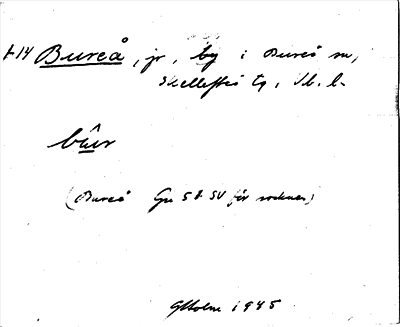 t14 Bureå, jr, by i Bureå sn,
Skellefteå tg, Vb. l.
bûr
(Bureå Gu 5 b SV för socknen)
GHolm 1945